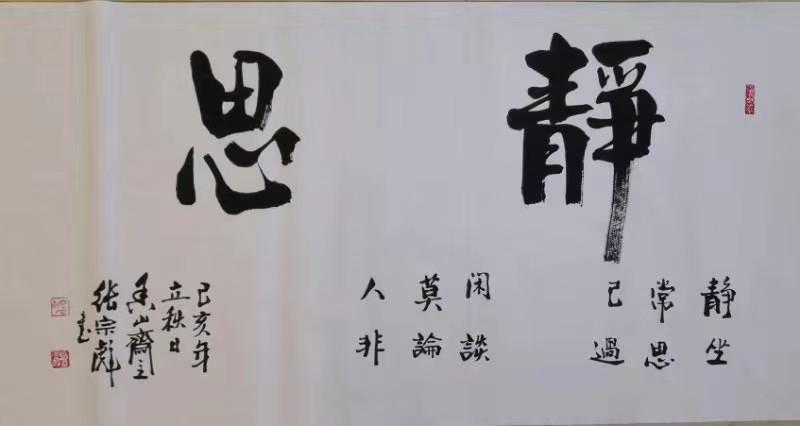 靜思
靜坐
常思
己過
闲談
莫論
人非
己亥年
立秋日
香山齋主
張宗彪
書